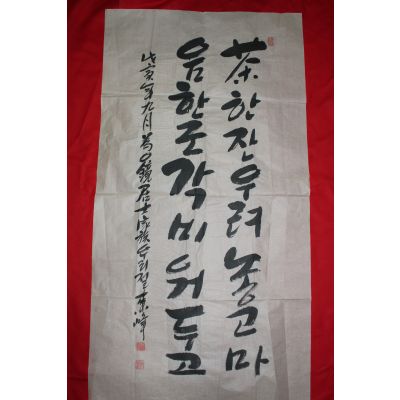 茶한잔우려놓고마
음한조각비워두고
年九月
居士家族
東峰